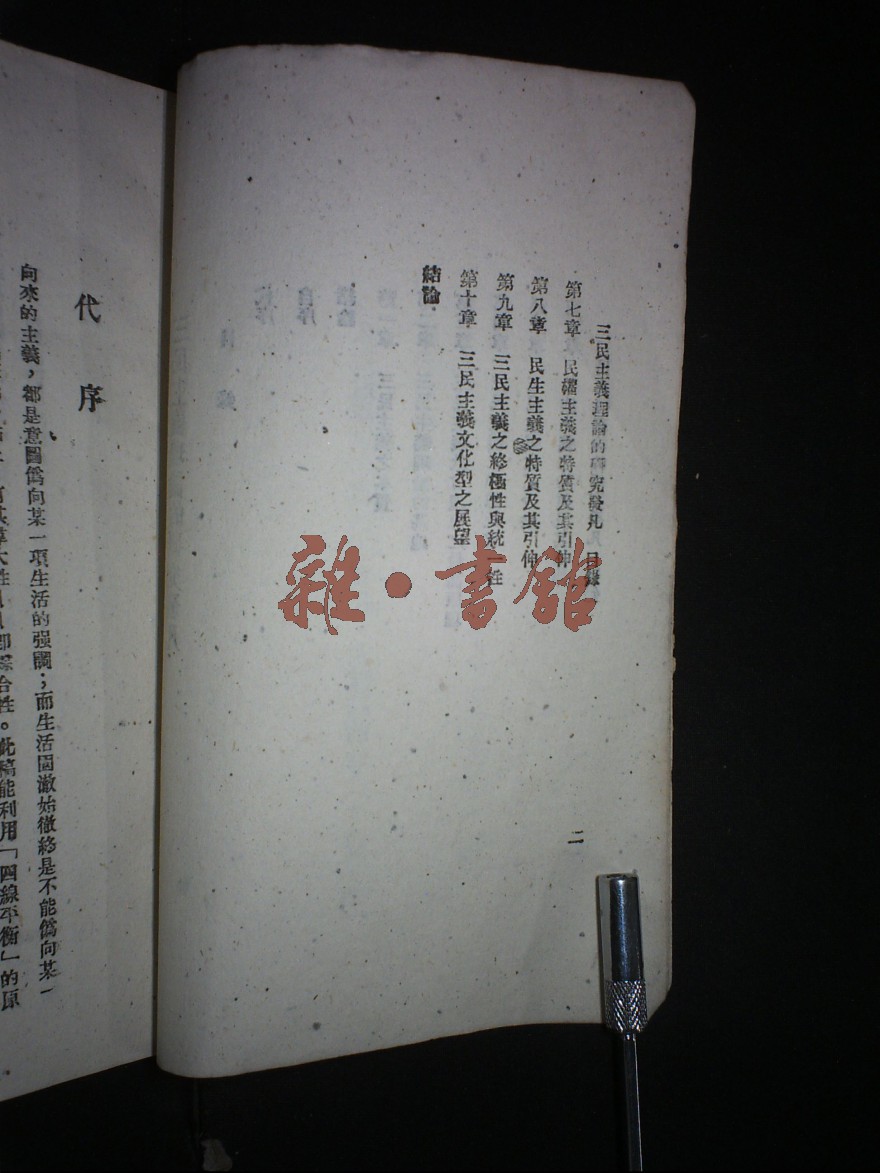 三民主義理論的研究發凡 目錄
第七章 民權主義之特質及其引伸
第八章 民生主義之特質及其引伸
第九章 三民主義之終極性與統一性
第十章 三民主義文化型之展望
結論
二
代序
向來的主義，都是意圖僞向某一項生活的强調；而生活圓澈始徹終是不能僞向某一
其偉大性
卽綜合性。此稿能利用「四線平衡」的原
雜·書館